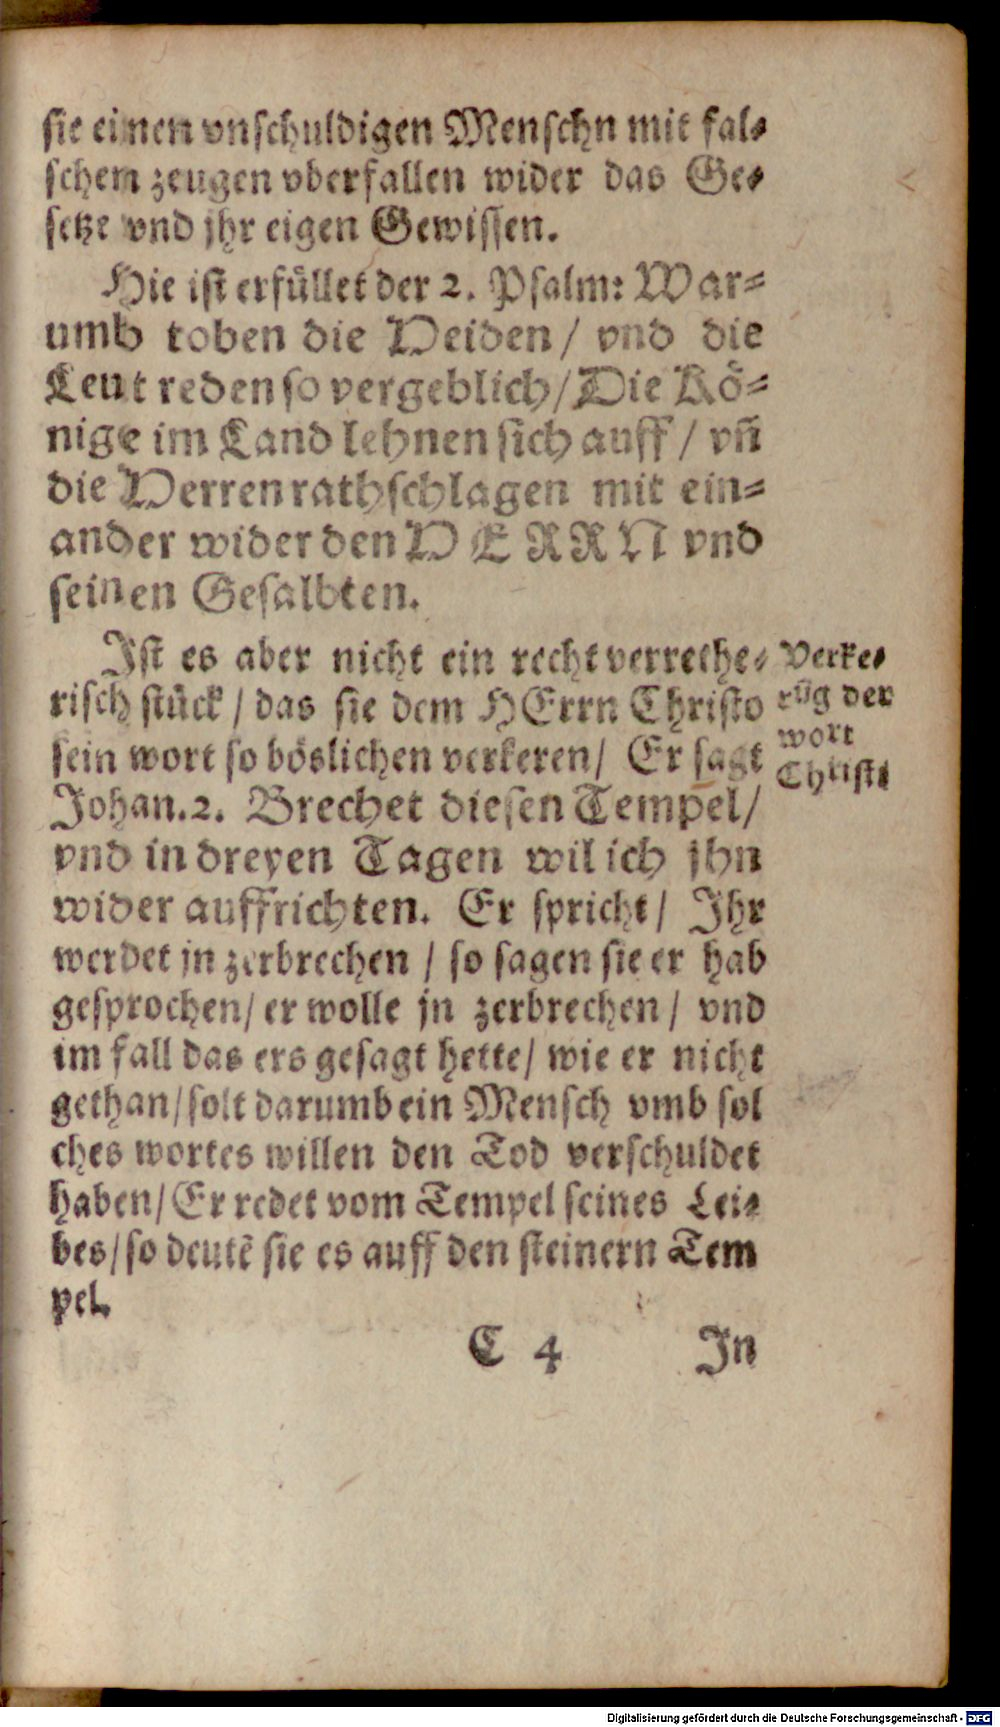 sie einen vnschuldigen Menschn mit fal-
schem zeugen vberfallen wider das Ge-
setze vnd jhr eigen Gewissen.
Hie ist erfüllet der 2. Psalm: War-
umb toben die Heiden / vnd die
Leut reden so vergeblich / Die Kö-
nige im Land lehnen sich auff / vñ
die Herren rathschlagen mit ein-
ander wider den HERRN vnd
seinen Gesalbten.
Ist es aber nicht ein recht verrethe-
risch stück / das sie dem HErrn Christo
sein wort so böslichen verkeren / Er sagt
Johan. 2. Brechet diesen Tempel /
vnd in dreyen Tagen wil ich jhn
wider auffrichten. Er spricht / Ihr
werdet jn zerbrechen / so sagen sie er hab
gesprochen / er wolle jn zerbrechen / vnd
im fall das ers gesagt hette / wie er nicht
gethan / solt darumb ein Mensch vmb sol
ches wortes willen den Tod verschuldet
haben / Er redet vom Tempel seines Lei-
bes / so deutẽ sie es auff den steinern Tem
pel.
Verke-
rũg der
wort
Christi
C 4 In
Digitalisierung gefördert durch die Deutsche Forschungsgemeinschaft - DFG